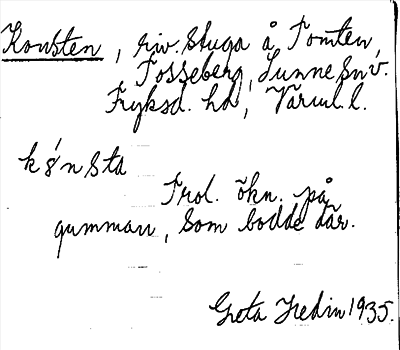 Konsten, riv. stuga å Tomten,
Tosseberg, Sunne sn v.
Fryksd. hd, Värml. l.
kǿnsta
Trol. ökn. på
gumman, som bodde där.
Greta Hedin 1935.